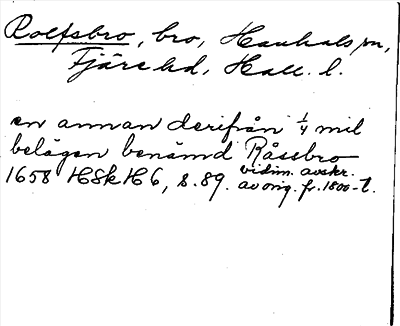 Rolfsbro, bro, Hanhals sn,
Fjäre hd, Hall. l.
en annan derifrån 1/4 mil
belägen benämd Råssbro
1658 HSk H 6, s. 89. vidim. avskr.
av orig. fr. 1800-t.